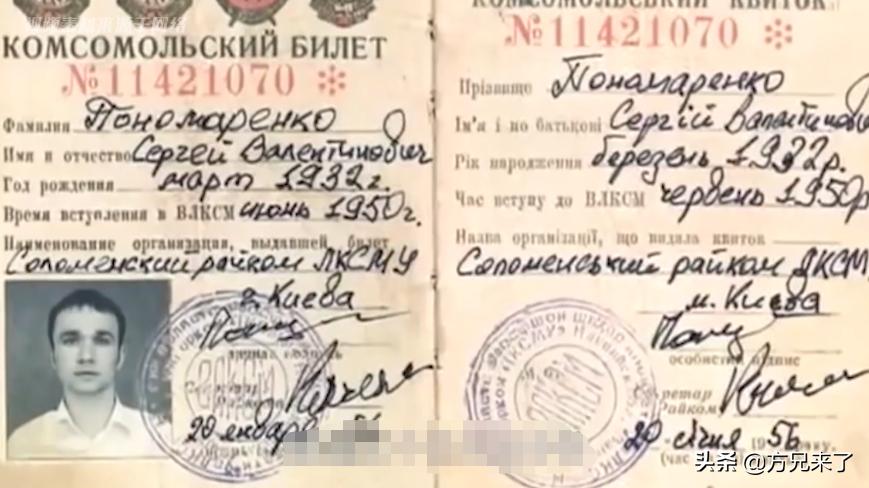 视频素材来源于网络
КОМСОМОЛЬСКИЙ БИЛЕТ
№11421070
Фамилия Пономаренко
Имя и отчество Сергей Валентинович
Год рождения март 1932 г.
Время вступления в ВЛКСМ июнь 1950г.
Наименование организации, выдавшей билет
Соломенский райком ЛКСМУ
г. Киева
личная подпись
Секретарь
Райкома
20 января 56
КОМСОМОЛЬСЬКИЙ КВИТОК
№11421070
Прізвище Пономаренко
Ім'я і по батькові Сергій Валентинович
Рік народження березень 1932р.
Час вступу до ВЛКСМ червень 1950р
Назва організації, що видала квиток
Соломенський райком ЛКСМ
м. Києва
особистий підпис
Секретар
Райкому
20 січня 1956 року.
ВЛКСМ
头条 @方兄来了